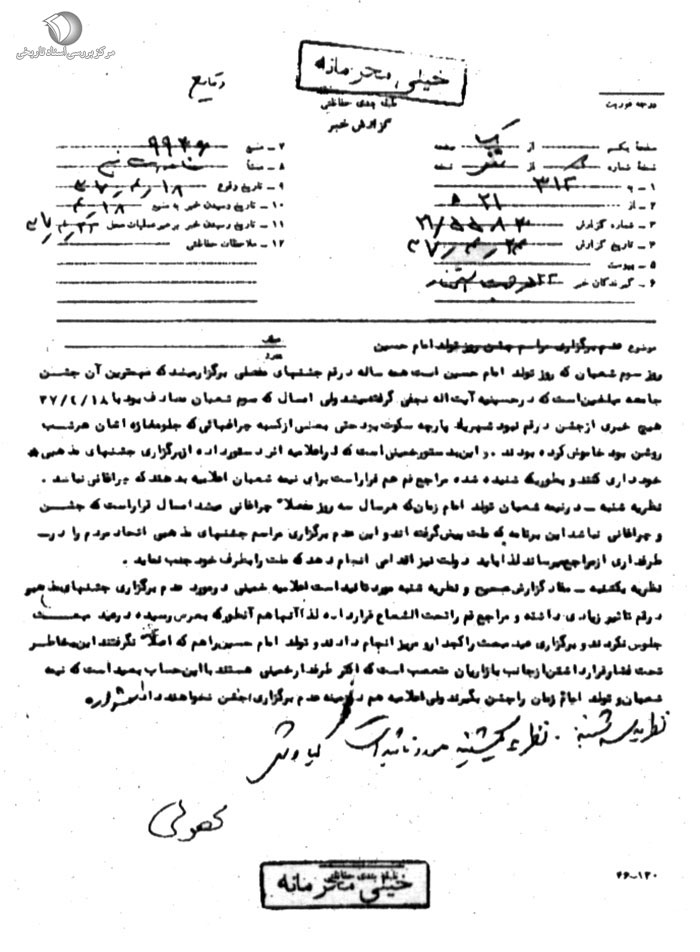 مرکز بررسی اسناد تاریخی
خیلی محرمانه
وقایع
طبقه بندی حفاظتی
گزارش خبر
درجه فوریت
صفحه یکم از یک صفحه
نسخه شماره از نسخه
۱ ـ به ۳۱۲
۲ ـ از ۲۱ ه
۳ ـ شماره گزارش ۲۱/۵۵۸۲
۴ ـ تاریخ گزارش ۳۷/۴/۲۴
۵ ـ پیوست
۶ ـ گیرندگان خبر
۷ ـ منبع ۹۹۴۶
۸ ـ منشأ
۹ ـ تاریخ وقوع ۳۷/۴/۱۸
۱۰ ـ تاریخ رسیدن خبر به منبع ۴/۱۸
۱۱ ـ تاریخ رسیدن خبر به رهبر عملیات محل ۳۷/۴/۲۲
۱۲ ـ ملاحظات حفاظتی
موضوع عدم برگزاری مراسم جشن روز تولد امام حسین
روز سوم شعبان که روز تولد امام حسین است همه ساله در قم جشنهای مفصلی برگزار میشد که مهمترین آن جشن
جامعه مبلغین است که در حسینیه آیت اله نجفی گرفته میشد ولی امسال که سوم شعبان مصادف بود با ۳۷/۴/۱۸
هیچ خبری از جشن در قم نبود شهر یک پارچه سکوت بود حتی بعضی از کسبه چراغهائی که جلو مغازه اشان هر شب
روشن بود خاموش کرده بودند . و این به دستور خمینی است که در اعلامیه اش دستور داده از برگزاری جشنهای مذهبی
خودداری کنند و بطوریکه شنیده شده مراجع قم هم قرار است برای نیمه شعبان اعلامیه بدهند که چراغانی نباشد .
نظریه شنبه ـ در نیمه شعبان تولد امام زمان که هر سال سه روز مفصلا" چراغانی میشد امسال قرار است که جشن
و چراغانی نباشد این برنامه که ملت پیش گرفته اند و این عدم برگزاری مراسم جشنهای مذهبی اتحاد مردم را در ـ
طرفداری از مراجع میرساند لذا باید دولت نیز اقدامی انجام دهد که ملت را بطرف خود جلب نماید .
نظریه یکشنبه ـ مفاد گزارش صحیح و نظریه شنبه مورد تائید است اعلامیه خمینی در مورد عدم برگزاری جشنهای مذهبی
در قم تاثیر زیادی داشته و مراجع قم را تحت الشعاع قرار داده لذا آنها هم آنطور که بعرض رسیده در عید مبعث
جلوس نکردند و برگزاری عید مبعث را کجدار و مریز انجام دادند و تولد امام حسین را هم که اصلا" نگرفتند این بخاطر
تحت فشار قرار داشتن از جانب بازاریان متعصب است که اکثر طرفدار خمینی هستند با این حساب بعید است که نیمه
شعبان و تولد امام زمان را جشن بگیرند ولی اعلامیه هم در زمینه عدم برگزاری جشن نخواهند داد
نظریه سه شنبه . نظریه یکشنبه مورد تائید است
خیلی محرمانه
طبقه بندی حفاظتی
۴۶-۱۲۰